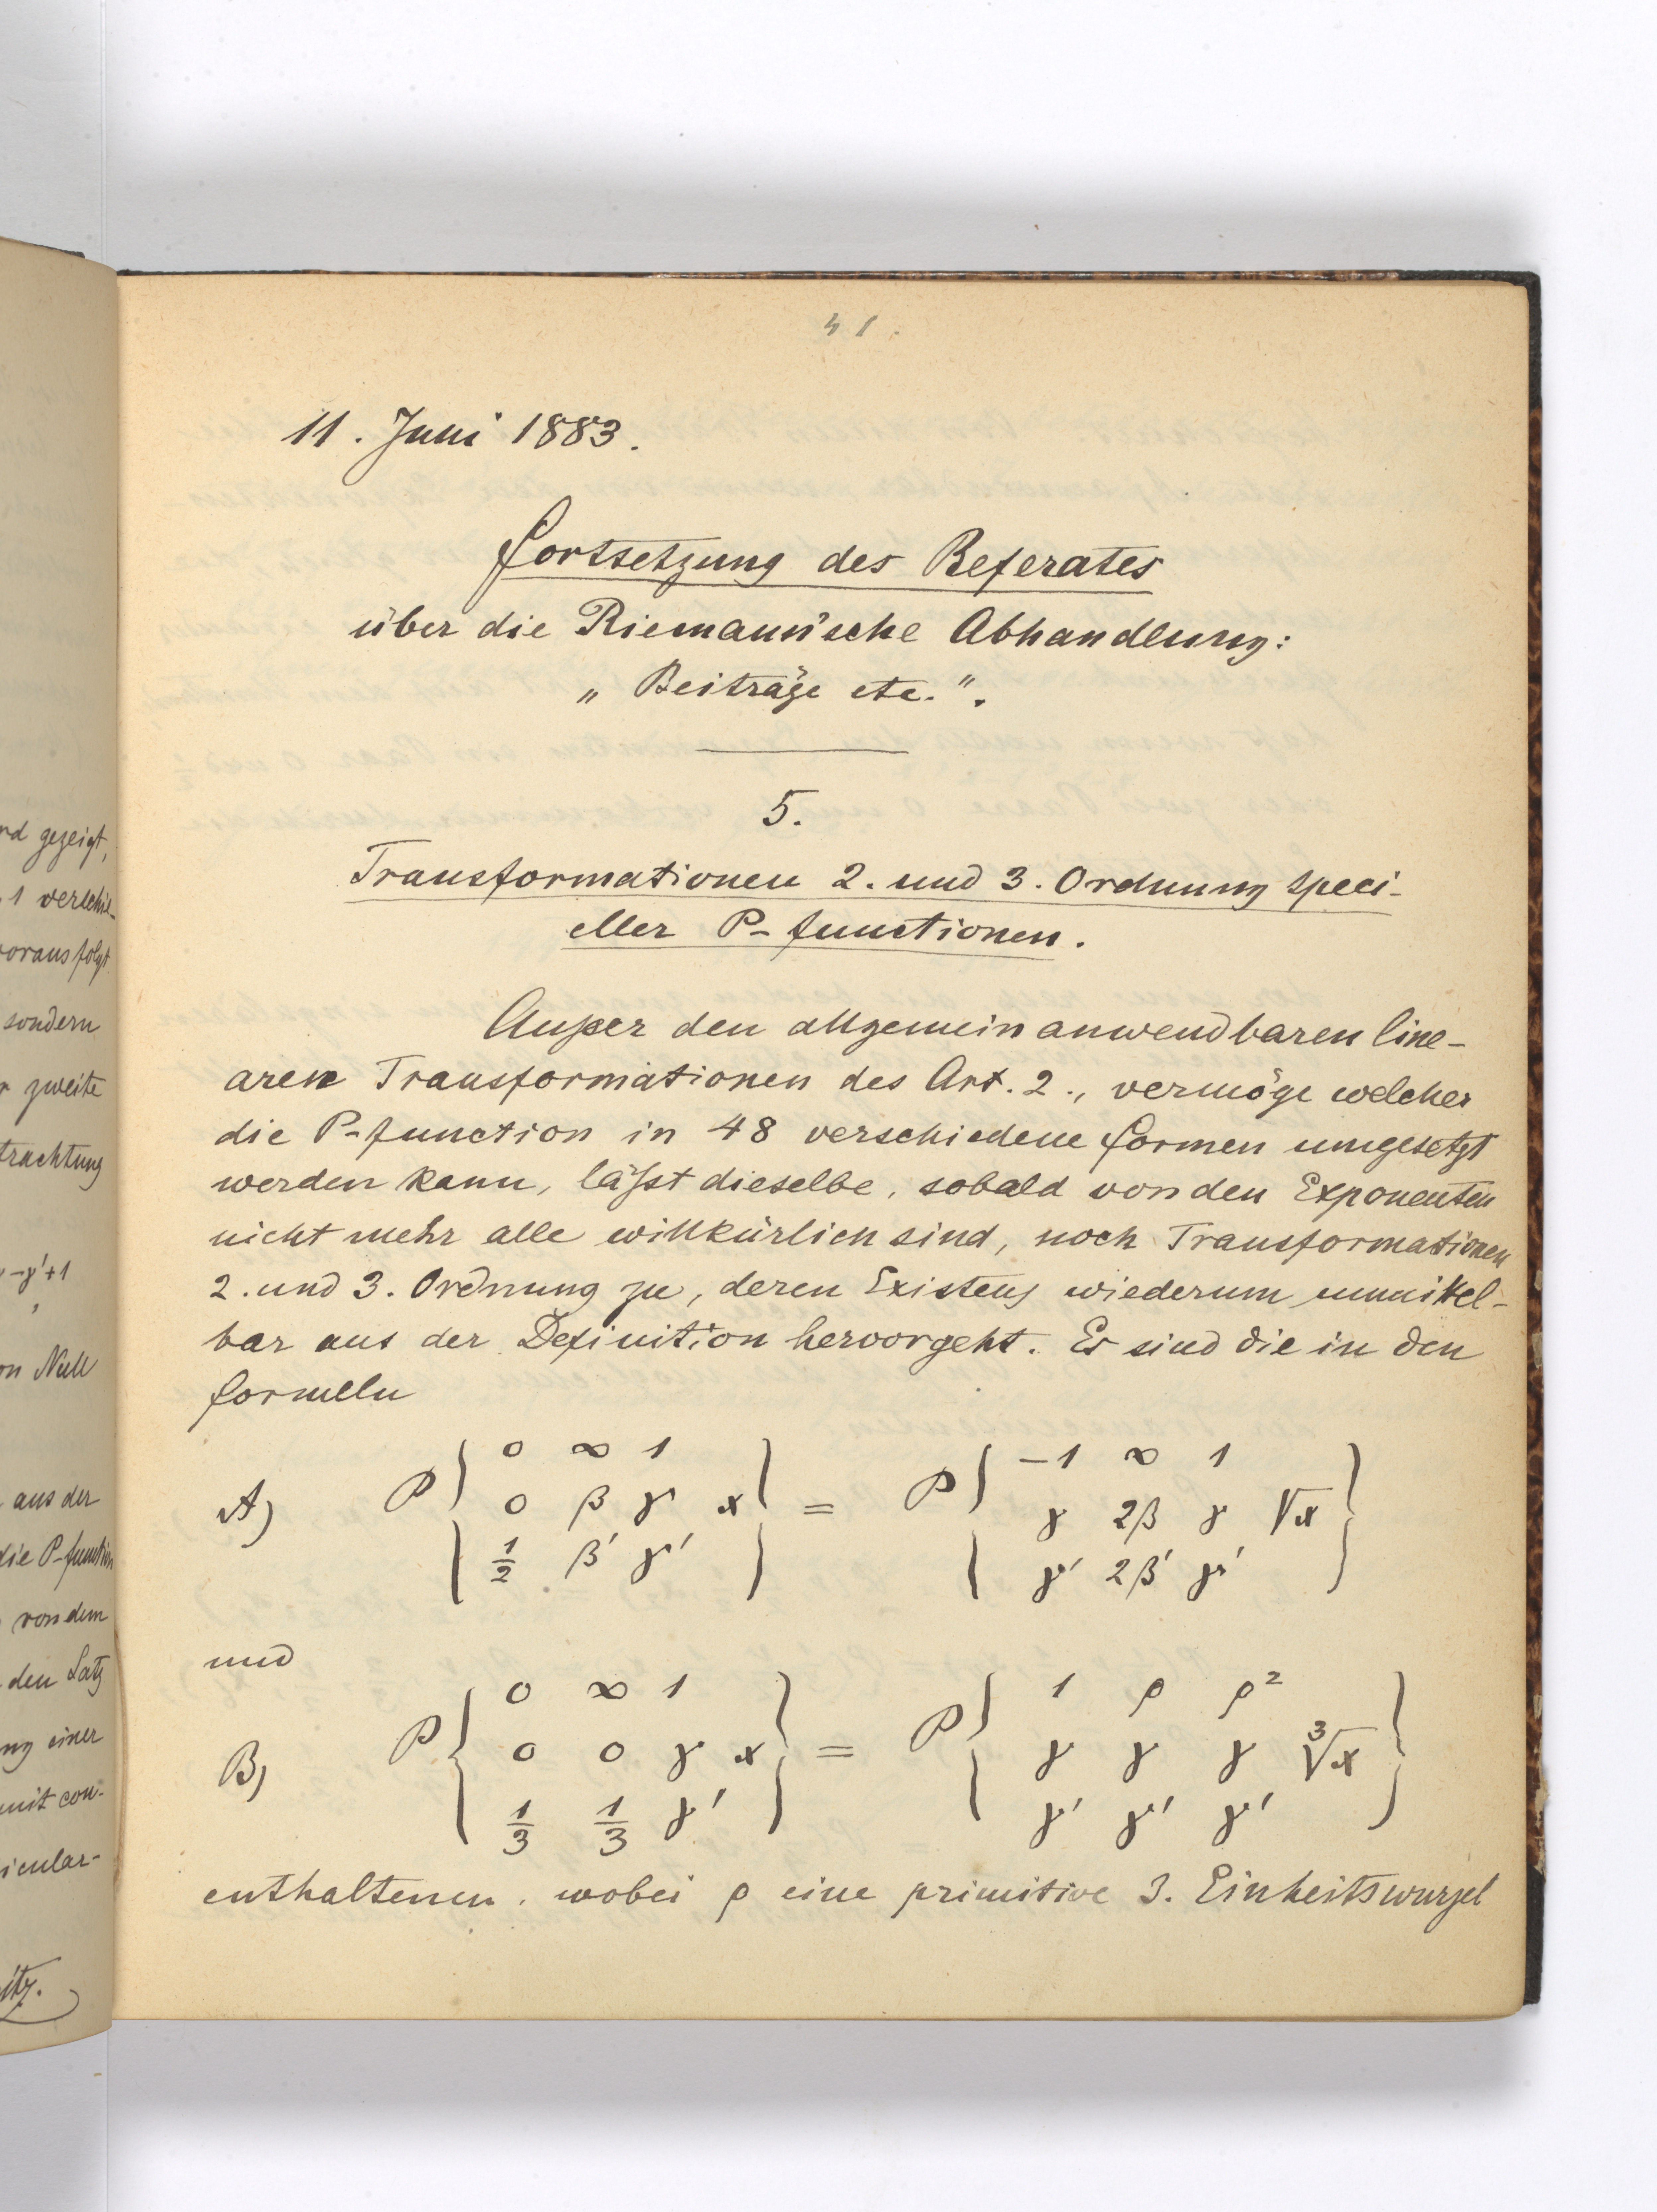 rd gezeigt,
1 verschie-
voraus folgt
sondern
r zweite
trachtung
-γ'+1
on Null
aus der
die P-function
von dem
den Satz
ng einer
mit con-
icular-
itz.
41.
11. Juni 1883.
Fortsetzung des Referates
über die Riemann'sche Abhandlung:
„Beiträge etc.".
5.
Transformationen 2. und 3. Ordnung speci-
eller P-functionen.
Außer den allgemein anwendbaren line-
aren Transformationen des Art. 2., vermöge welcher
die P-function in 48 verschiedene Formen umgesetzt
werden kann, läßt dieselbe, sobald von den Exponenten
nicht mehr alle willkürlich sind, noch Transformationen
2. und 3. Ordnung zu, deren Existenz wiederum unmittel-
bar aus der Definition hervorgeht. Es sind die in den
Formeln
0 ∞ 1 -1 ∞ 1
A) P{ 0 β γ x } = P{ γ 2β γ √x }
1/2 β' γ' γ' 2β' γ'
und
0 ∞ 1 1 ρ ρ²
B) P{ 0 0 γ x } = P{ γ γ γ ³√x }
1/3 1/3 γ' γ' γ' γ'
enthaltenen, wobei ρ eine primitive 3. Einheitswurzel